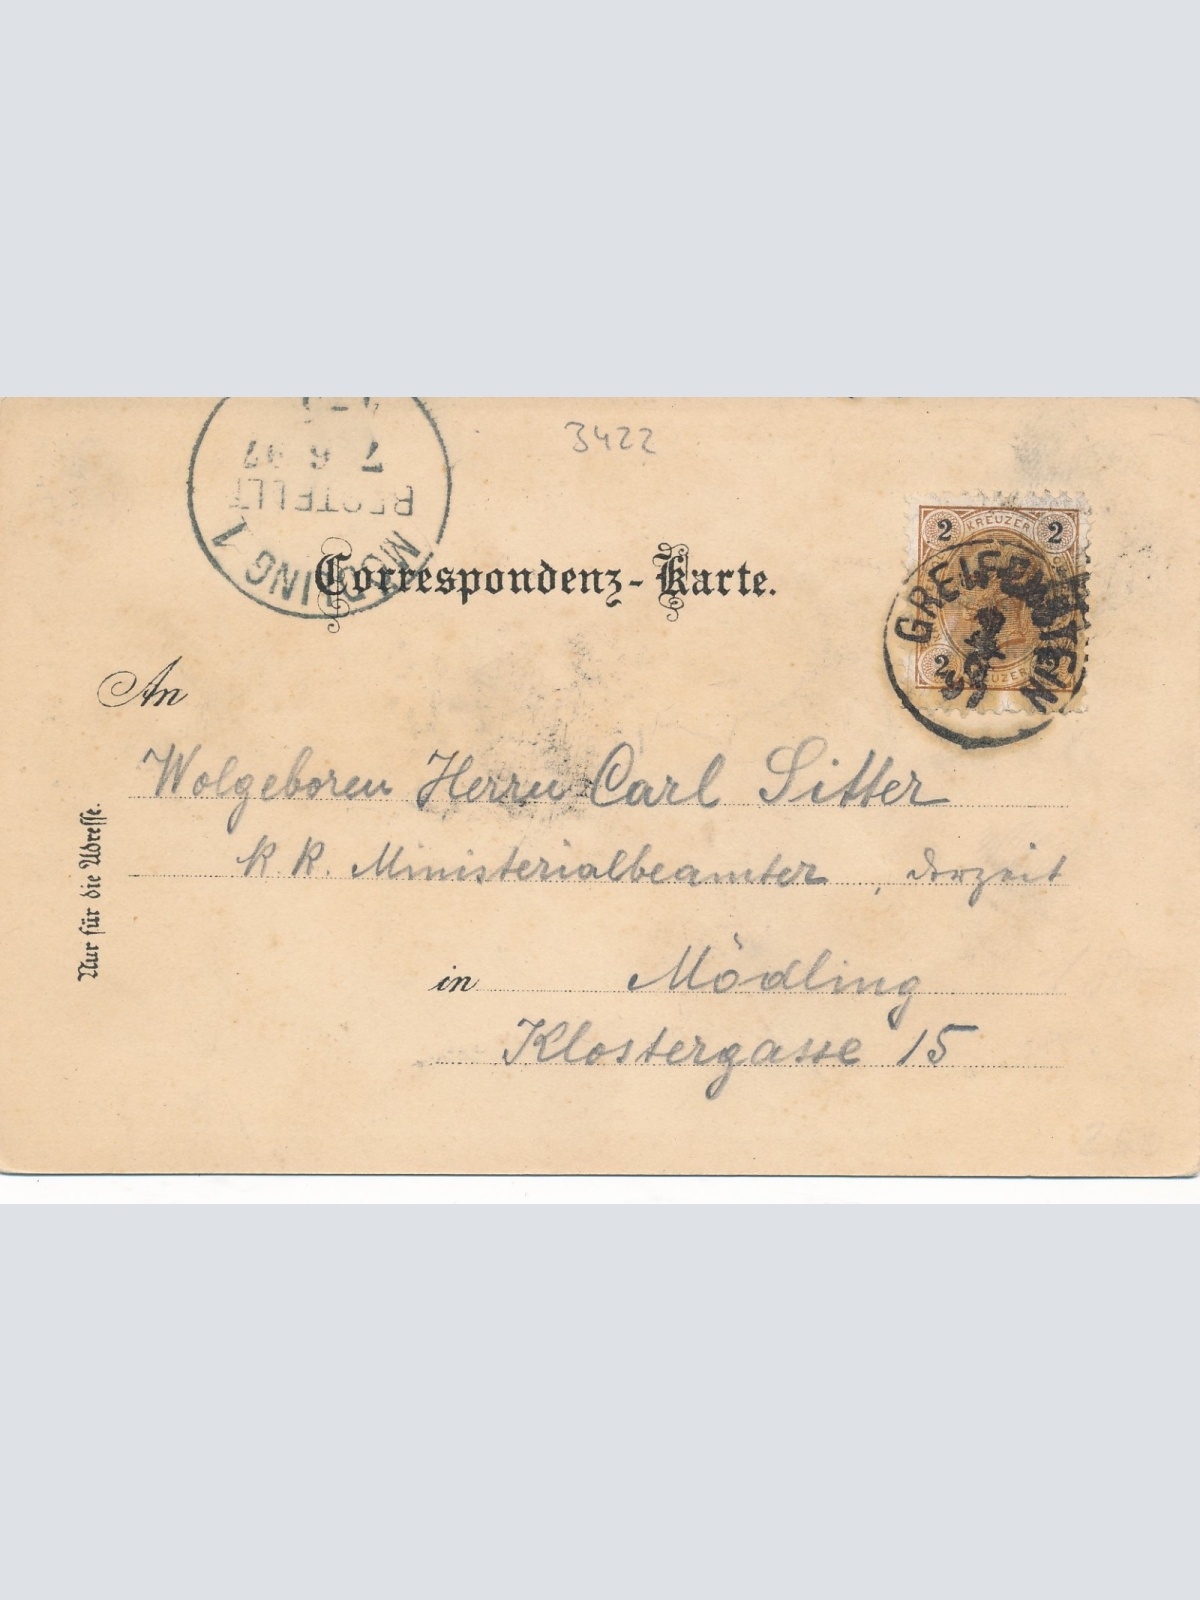 3422
7 6 97
BESTELLT
MÖDLING 1
2 KREUZER 2
GREIFENSTEIN
2 KREUZER 2
Correspondenz-Karte.
An
Wolgeboren Herrn Carl Sitter
k. k. Ministerialbeamter, derzeit
in Mödling
Klostergasse 15
Nur für die Adresse.